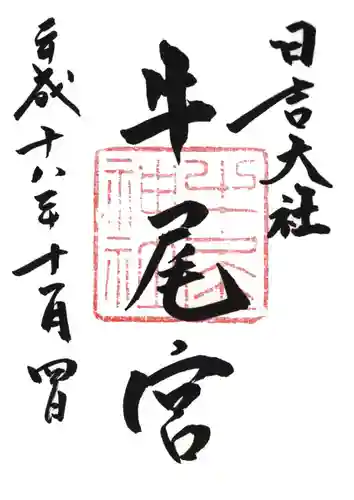 日吉大社
牛尾宮
平成十八年十月四日
牛尾
神社